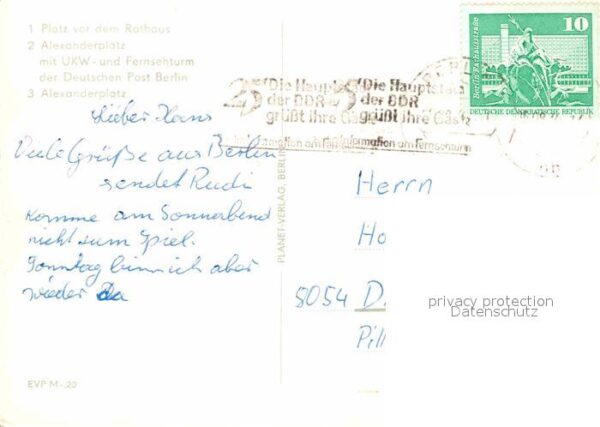 1 Platz vor dem Rathaus
2 Alexanderplatz
mit UKW- und Fernsehturm
der Deutschen Post Berlin
3 Alexanderplatz
Lieber Hans
Viele Grüße aus Berlin
sendet Rudi
Komme am Sonnabend
nicht zum Spiel.
Sonntag bin ich aber
wieder da
EVP M -.20
PLANET-VERLAG, BERLIN
25 Die Haupt
der DDR
grüßt ihre Gäs
Die Hauptsta
der DDR
grüßt ihre Gäste
Information am Fernsehturm
10
Berlin-Rathausstraße
DEUTSCHE DEMOKRATISCHE REPUBLIK
Herrn
Ho
8054 D
Pil
privacy protection
Datenschutz